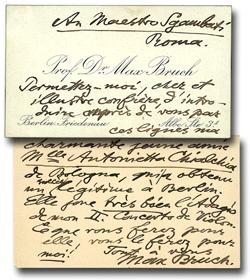 An Maestro Sgambati
Roma.
Prof. Dr. Max Bruch
Permettez-moi, cher et
illustre confrère, d'intro-
duire auprès de vous par
Berlin-Friedenau
Albe Str. 3
ces lignes ma
charmante jeune amie
Mlle Antonietta Chialchia
de Bologna, qui a obtenu
un
à Berlin.
Elle joue très bien l'Adagio
de mon II. Concerto de Violon.
Ce que vous ferez pour
elle, vous le ferez pour
moi!
Tout à vous
Max Bruch.